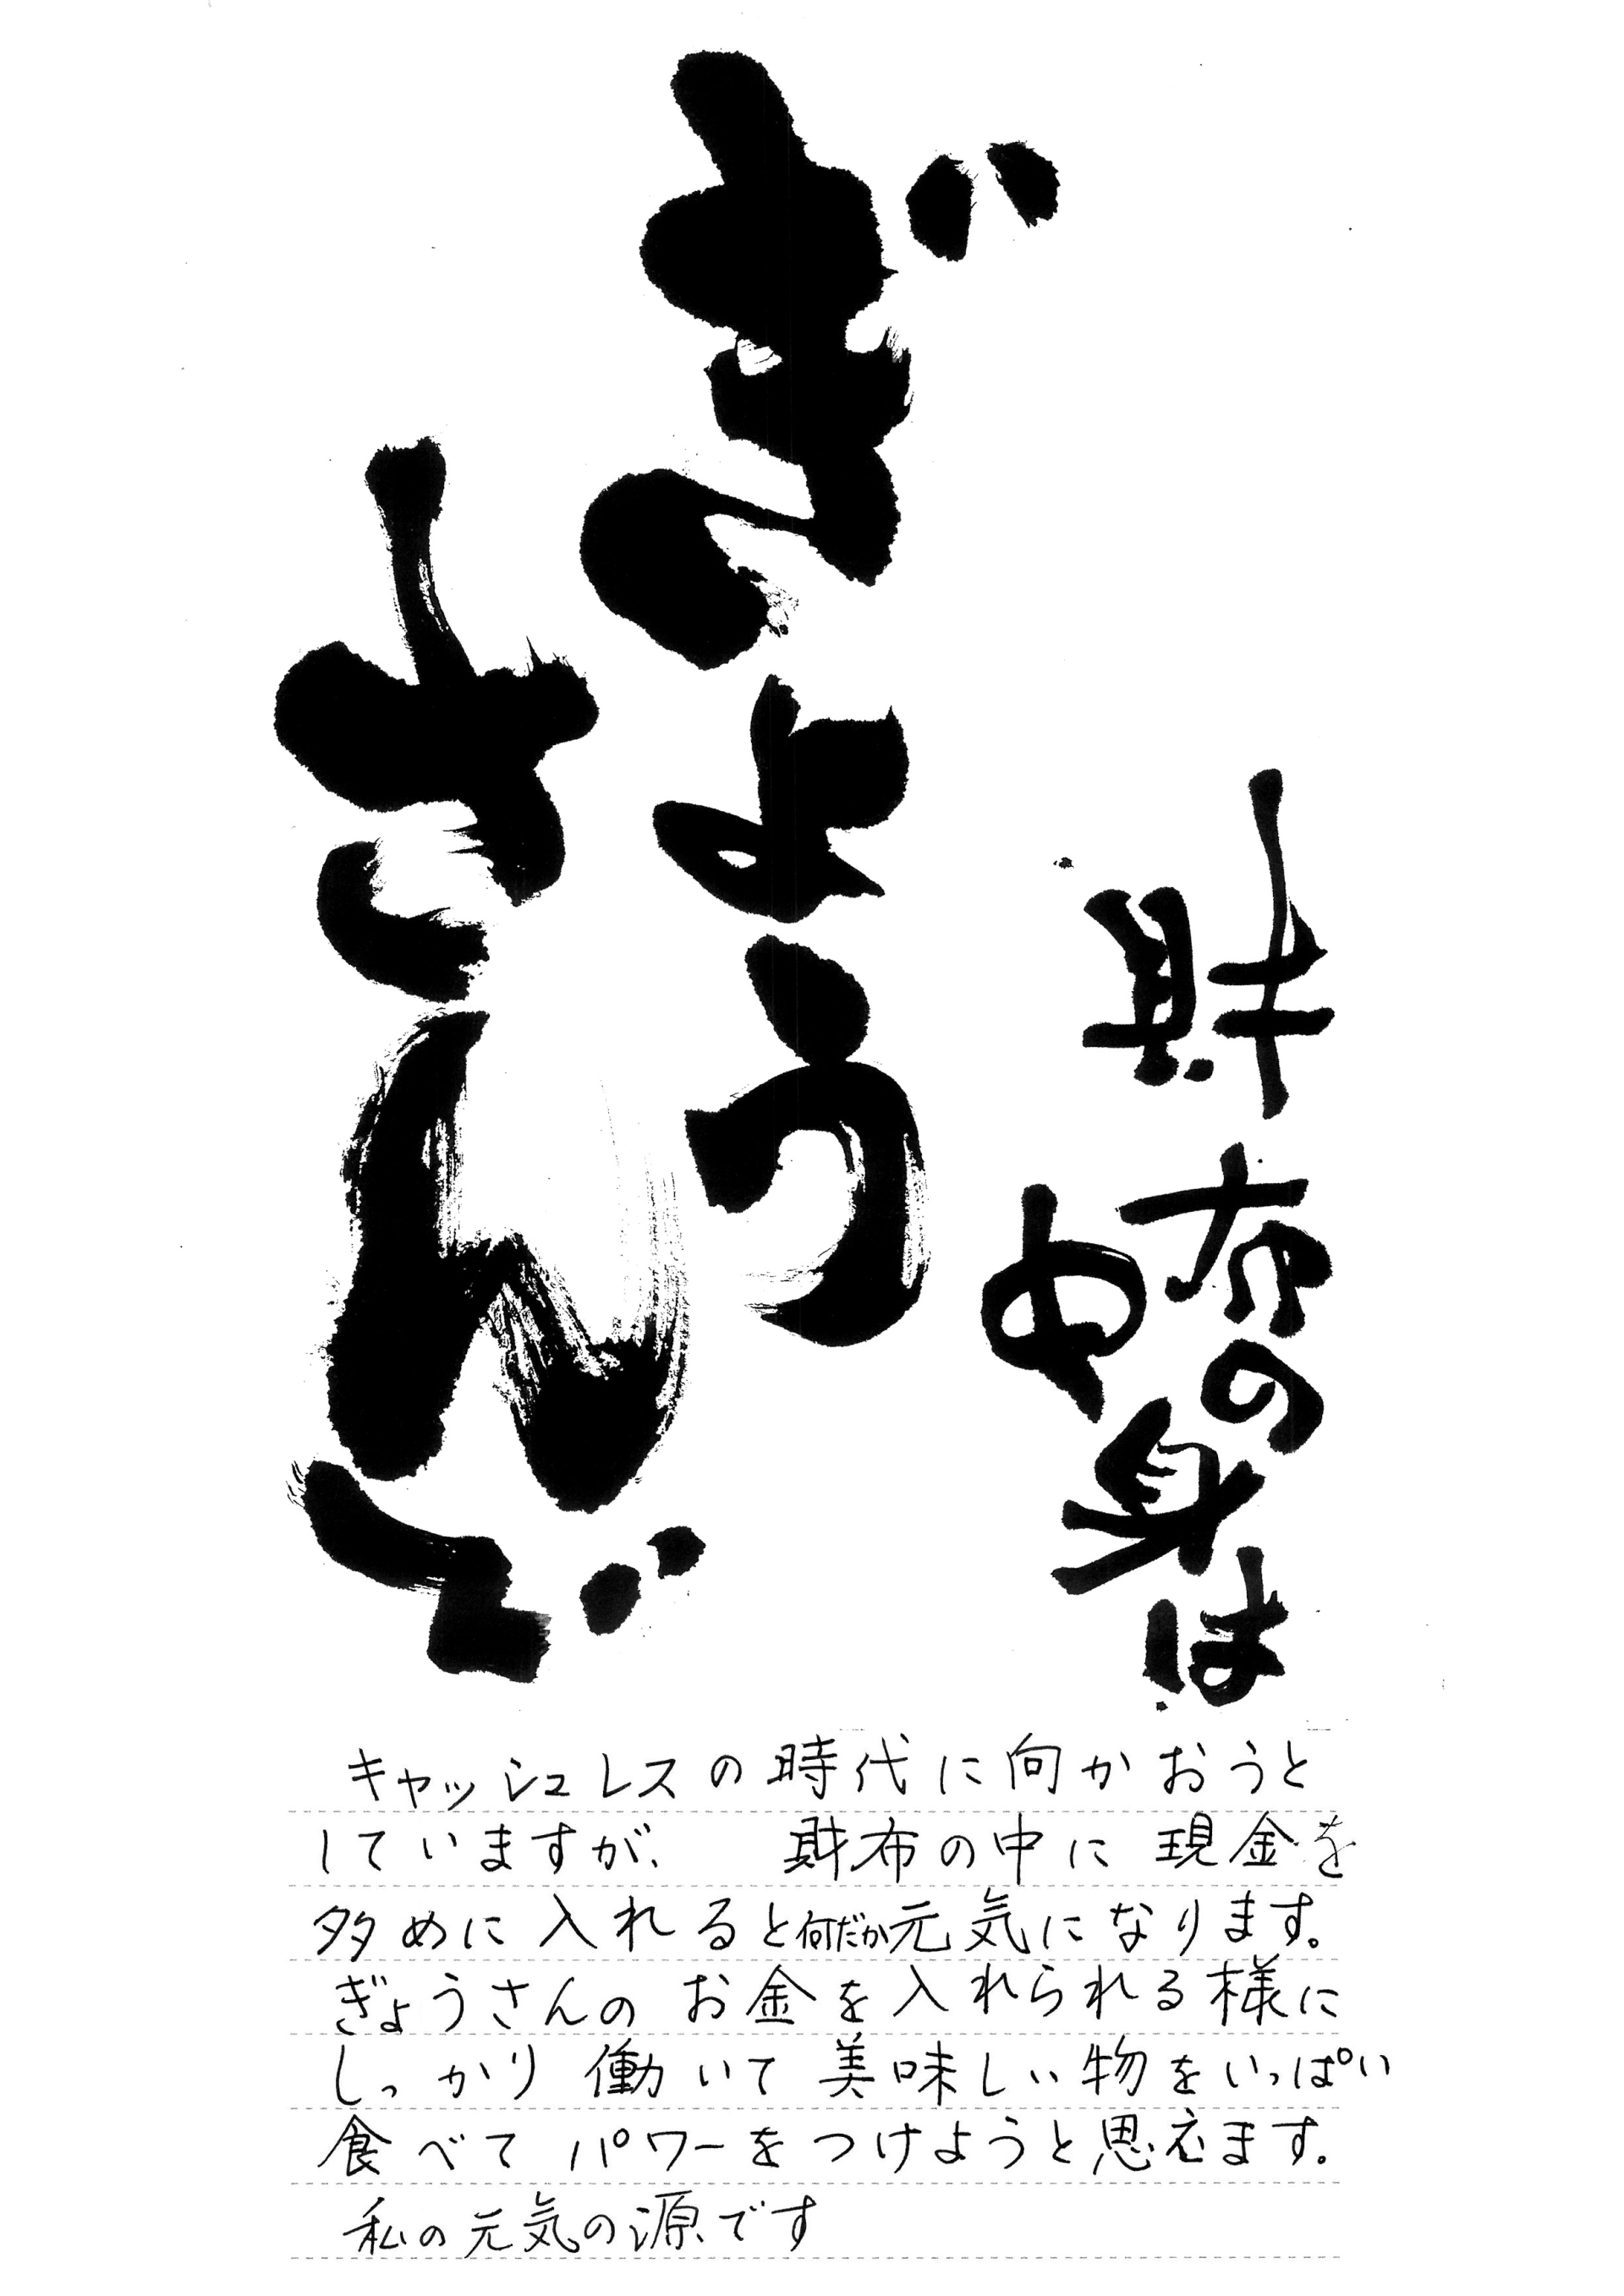 財布の
中身は
ぎょう
さんど
キャッシュレスの時代に向かおうと
していますが、 財布の中に現金を
多めに入れると何だか元気になります。
ぎょうさんの お金を入れられる様に
しっかり働いて美味しい物をいっぱい
食べて パワーをつけようと思えます。
私の元気の源です